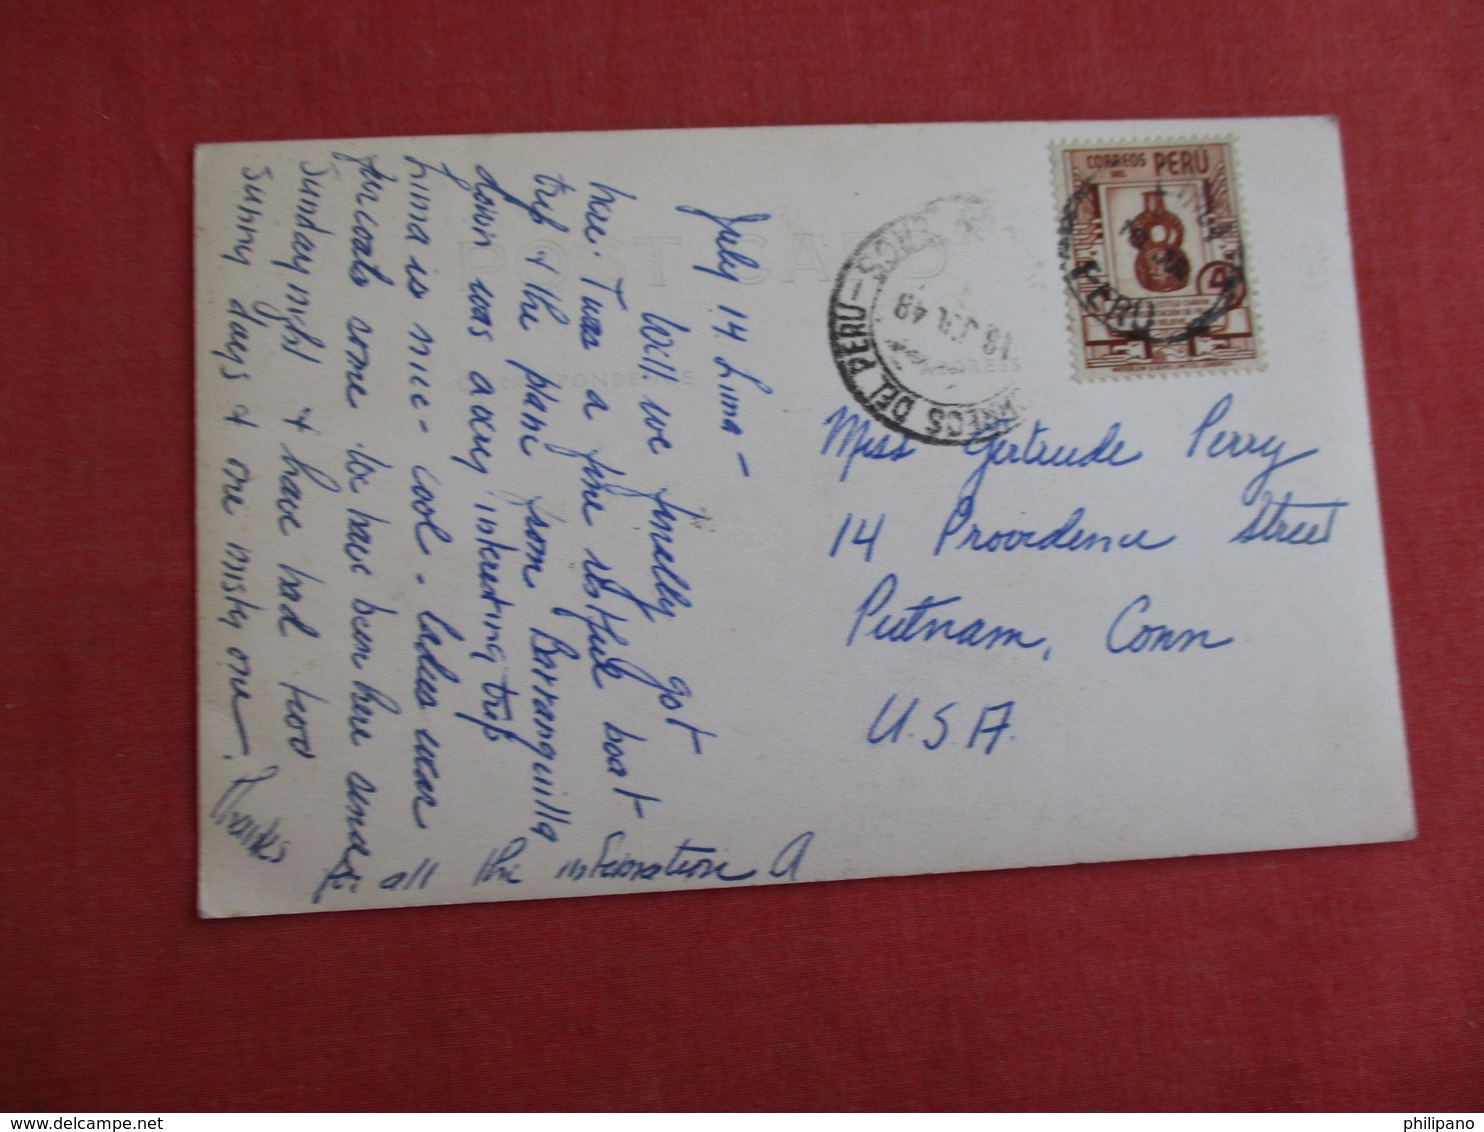 July 14. Lima -
Well we finally got
here. Twas a fine restful boat
trip & the plane from Barranquilla
down was a very interesting trip
Lima is nice - cool - ladies wear
fur coats some. We have been here since
Sunday night & have had two
sunny days & one misty one.
Thanks
for all the information A
Miss Gertrude Perry
14 Providence Street
Putnam, Conn
U.S.A.
CORREOS
DEL
PERU
PERU
CORREOS DEL PERU
18 JUL 48
POST CARD
CORRESPONDENCE
philipano